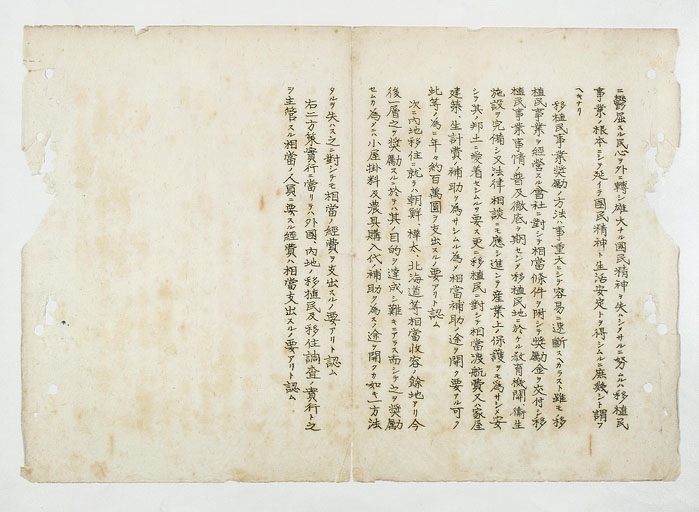 ニ鬱屈スル民心ヲ外ニ轉シ雄大ナル國民精神ヲ失ハシメサルニ努ムルハ移植民
事業ノ根本ニシテ延イテ國民精神ト生活安定トヲ得シムルニ庶幾シト謂フ
ヘキナリ
移植民事業奬勵ノ方法ハ事重大ニシテ容易ニ速斷スヘカラスト雖モ移
植民事業ヲ經營スル會社ニ對シテ相當條件ヲ附シテ奬勵金ヲ交付シ移
植民事業事情ノ普及徹底ヲ期セシメ移植民地ニ於ケル敎育機關、衞生
施設ヲ完備シ又法律相談ニモ應シ進シテ産業上ノ保護ヲモ為サシメ安
シテ其ノ邦土ニ愛着セシムルヲ要ス更ニ移植民ニ對シテ相當渡航費又ハ家屋
建築、生計費ノ補助ヲ為サシムル為メ相當補助ノ途ヲ開ク要アル可ク
此等ノ為ニ年々約百萬圓ヲ支出スルノ要アリト認ム
次ニ內地移住ニ就テハ朝鮮、樺太、北海道等相當收容ノ餘地アリ今
後一層之ヲ奬勵スルニ於テハ其ノ目的ヲ達成シ難キニアラス而シテ之ヲ奬勵
セムカ為メニハ小屋掛料及農具購入代ノ補助ヲ為スノ途ヲ開クカ如キ一方法
タルヲ失ハス之ニ對シテモ相當ノ經費ヲ支出スルノ要アリト認ム
右二方策實行ニ當リテハ外國、內地ノ移植民及移住調査ノ實行ト之
ヲ主管スル相當ノ人員ニ要スル經費ハ相當支出スルノ要アリト認ム